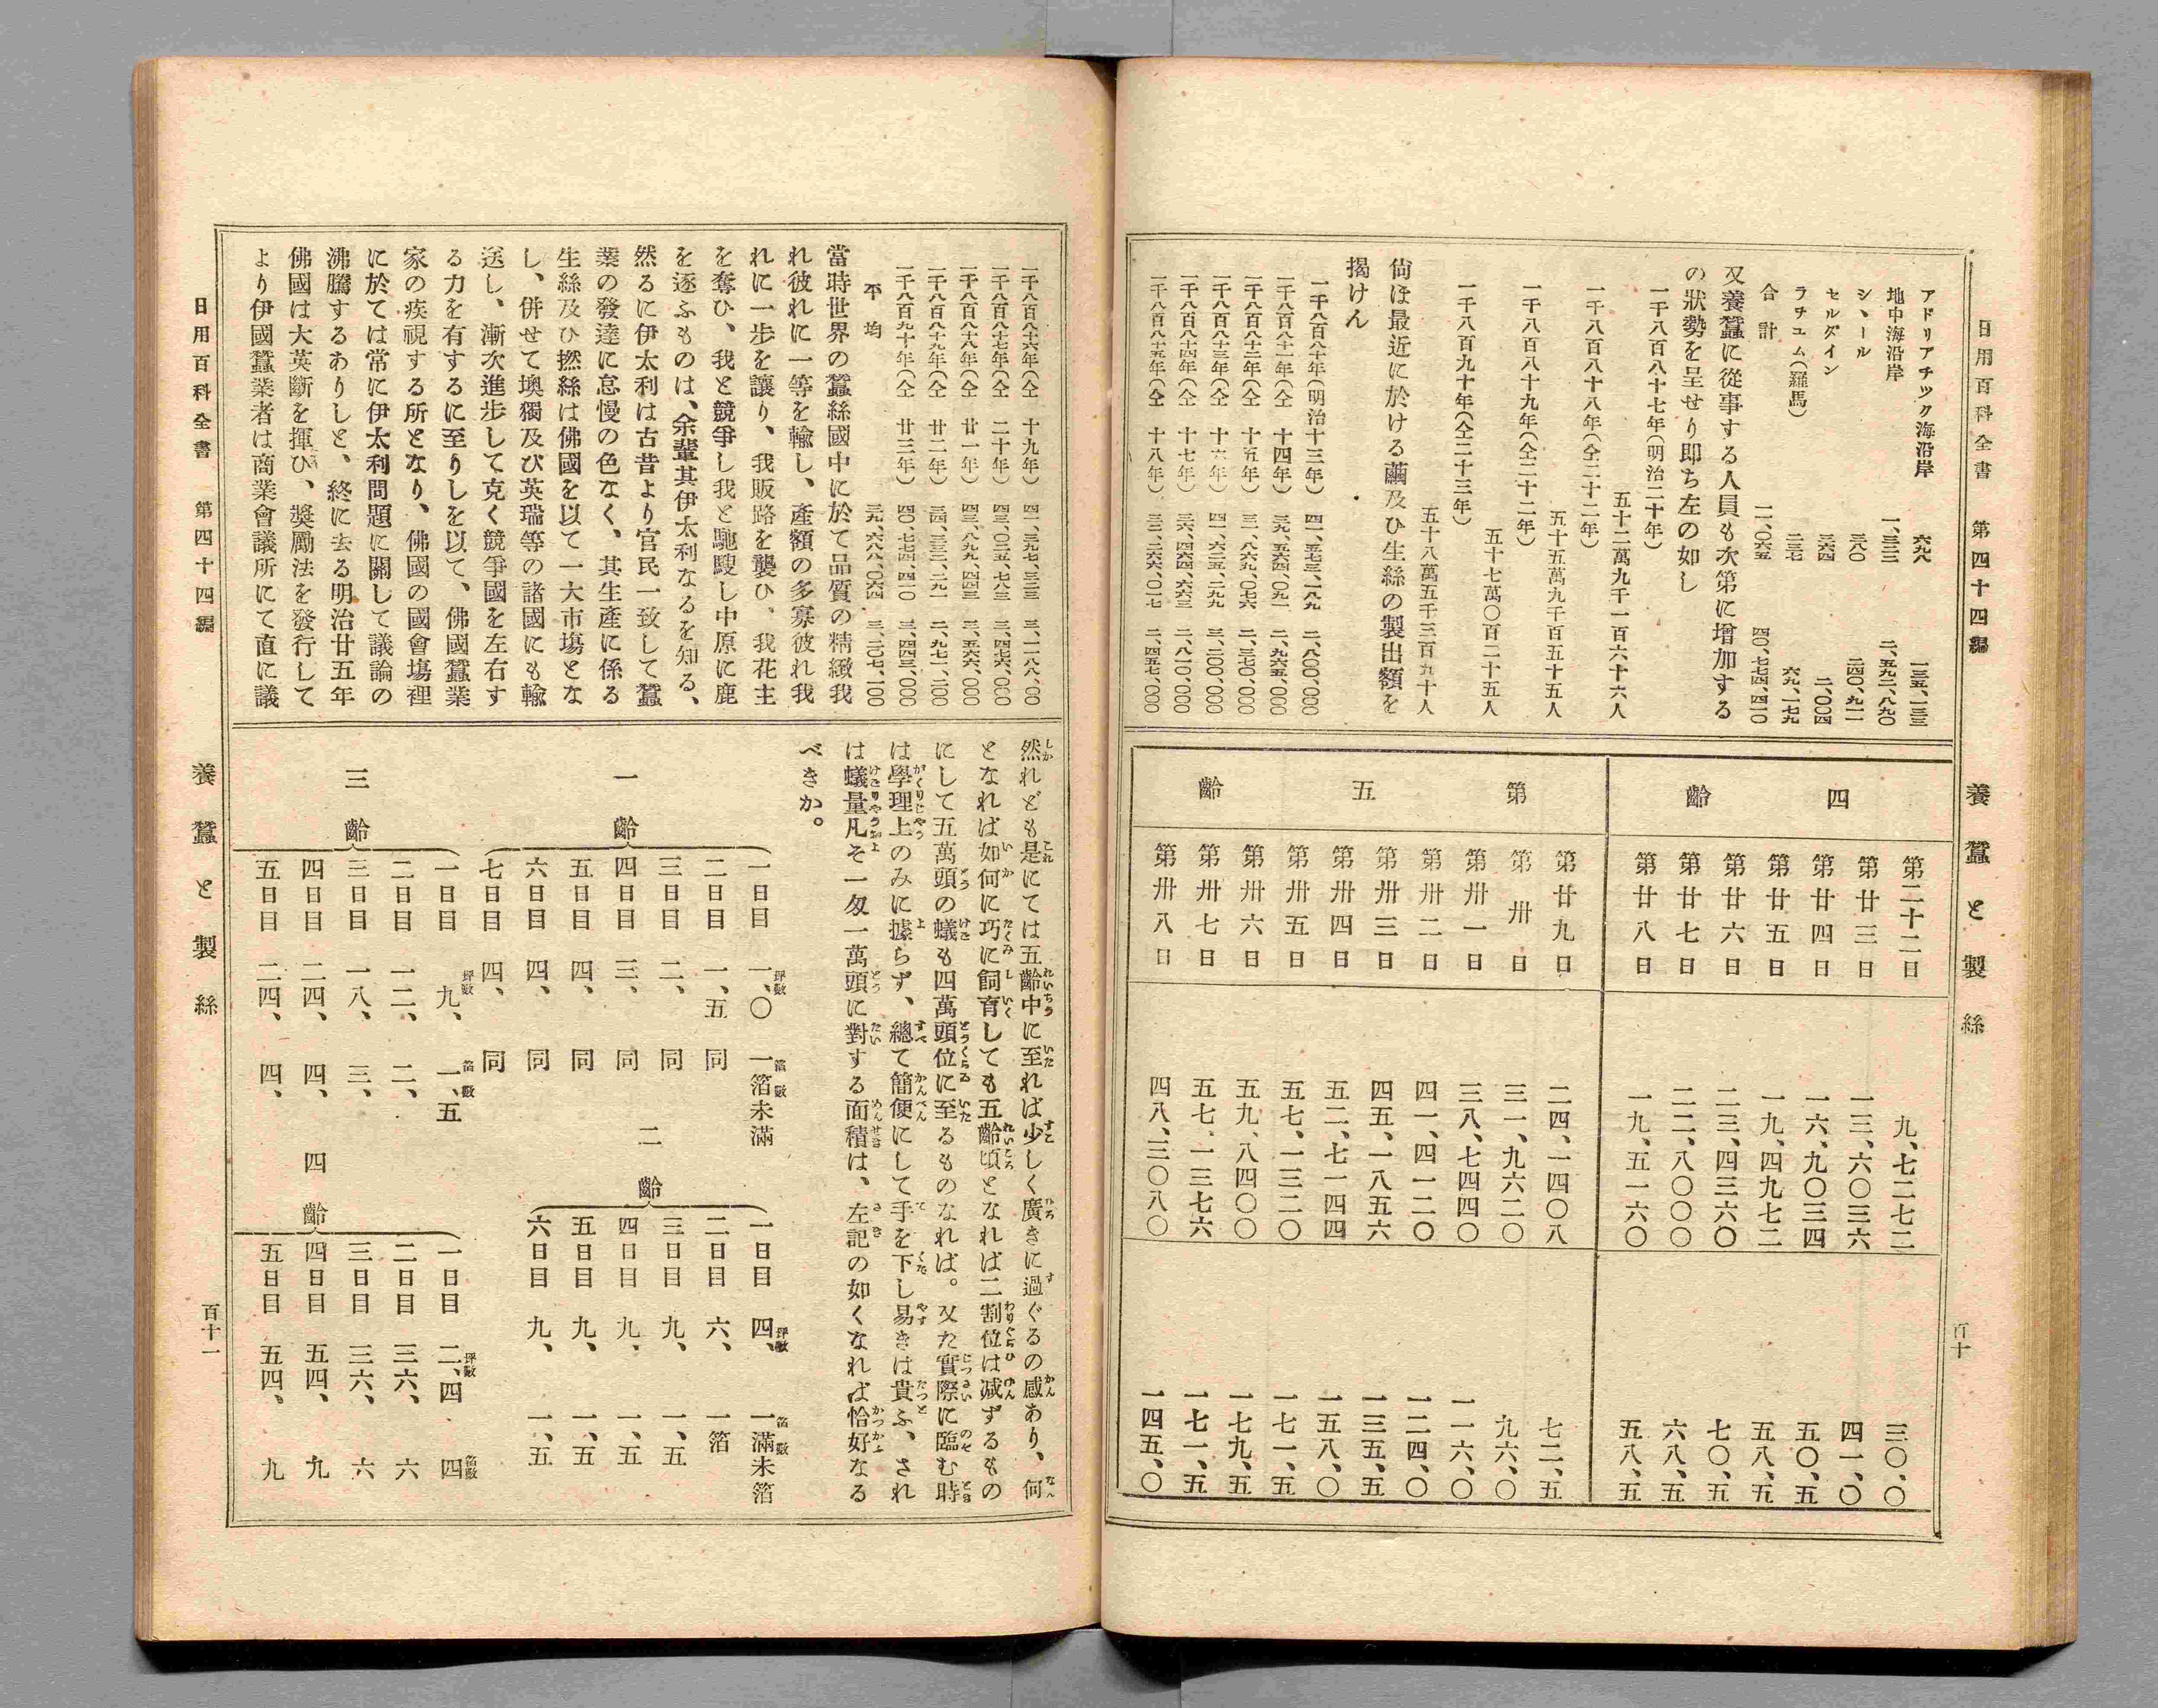 日用百科全書 第四十四編
養蠶と製絲
百十
アドリアチック海沿岸 六九八 一三五、一三三
地中海沿岸 一、三三二 二、五九二、八九〇
シヽール 三八〇 二四〇、九一一
セルダイン 三六四 二、〇〇四
ラチユム(羅馬) 二三七 六九、一七九
合計 一一、〇六五 四〇、七七四、四一〇
又養蠶に從事する人員も次第に增加する
の狀勢を呈せり即ち左の如し
一千八百八十七年(明治二十年)
五十二萬九千一百六十六人
一千八百八十八年(仝二十二年)
五十五萬九千百五十五人
一千八百八十九年(仝二十二年)
五十七萬〇百二十五人
一千八百九十年(仝二十三年)
五十八萬五千三百九十人
尙ほ最近に於ける繭及ひ生絲の製出額を
揭けん
一千八百八十年(明治十三年) 四一、五七三、一八九 二、八〇〇、〇〇〇
一千八百八十一年(仝 十四年) 三九、五六四、〇九一 二、九六五、〇〇〇
一千八百八十二年(仝 十五年) 三一、八六九、〇七六 二、三七〇、〇〇〇
一千八百八十三年(仝 十六年) 四一、六三五、二九九 三、二〇〇、〇〇〇
一千八百八十四年(仝 十七年) 三六、四六四、六六三 二、八一〇、〇〇〇
一千八百八十五年(仝 十八年) 三二、二六六、〇一七 二、四五七、〇〇〇
四齡
第二十二日 九、七二七二 三〇、〇
第廿三日 一三、六〇三六 四一、〇
第廿四日 一六、九〇三四 五〇、五
第廿五日 一九、四九七二 五八、五
第廿六日 二三、四三六〇 七〇、五
第廿七日 二二、八〇〇〇 六八、五
第廿八日 一九、五一六〇 五八、五
第五齡
第廿九日 二四、一四〇八 七二、五
第卅日 三一、九六二〇 九六、〇
第卅一日 三八、七四四〇 一一六、〇
第卅二日 四一、四一二〇 一二四、〇
第卅三日 四五、一八五六 一三五、五
第卅四日 五二、七一四四 一五八、〇
第卅五日 五七、一三二〇 一七一、五
第卅六日 五九、八四〇〇 一七九、五
第卅七日 五七、一三七六 一七一、五
第卅八日 四八、三〇八〇 一四五、〇
一千八百八十六年(仝 十九年) 四一、三九七、三二三 三、一一八八、〇〇
一千八百八十七年(仝 二十年) 四三、〇二五、七八三 三、四七六、〇〇〇
一千八百八十八年(仝 廿一年) 四三、八九九、四四三 三、五六六、〇〇〇
一千八百八十九年(仝 廿二年) 三四、三三二、二九一 二、九七一、二〇〇
一千八百九十年(仝 廿三年) 四〇、七七四、四一〇 三、四四三、〇〇〇
平均 三九、六八八、〇六四 三、二〇七、一〇〇
當時世界の蠶絲國中に於て品質の精緻我
れ彼れに一等を輸し、產額の多寡彼れ我
れに一步を讓り、我販路を襲ひ、我花主
を奪ひ、我と競爭し我と馳騁し中原に鹿
を逐ふものは、余輩其伊太利なるを知る、
然るに伊太利は古昔より官民一致して蠶
業の發達に怠慢の色なく、其生產に係る
生絲及ひ撚絲は佛國を以て一大市塲とな
し、併せて墺獨及び英瑞等の諸國にも輸
送し、漸次進步して克く競爭國を左右す
る力を有するに至りしを以て、佛國蠶業
家の疾視する所となり、佛國の國會塲裡
に於ては常に伊太利問題に關して議論の
沸騰するありしと、終に去る明治廿五年
佛國は大英斷を揮ひ、奬勵法を發行して
より伊國蠶業者は商業會議所にて直に議
然れども是にては五齡中に至れば少しく廣きに過ぐるの感あり、何
となれば如何に巧に飼育しても五齡頃となれば二割位は减ずるもの
にして五萬頭の蟻も四萬頭位に至るものなれば。又た實際に臨む時
は學理上のみに據らず、總て簡便にして手を下し易きは貴ふ、され
は蟻量凡そ一匁一萬頭に對する面積は、左記の如くなれば恰好なる
べきか。
一齡
一日目 坪數一、〇 箔數一箔未滿
二日目 一、五 同
三日目 二、 同
四日目 三、 同
五日目 四、 同
六日目 四、 同
七日目 四、 同
二齡
一日目 坪數四、 箔數一滿未箔
二日目 六、 一箔
三日目 九、 一、五
四日目 九、 一、五
五日目 九、 一、五
六日目 九、 一、五
三齡
一日目 坪數九、 箔數一、五
二日目 一二、 二、
三日目 一八、 三、
四日目 二四、 四、
五日目 二四、 四、
四齡
一日目 坪數二、四 箔數四
二日目 三六、 六
三日目 三六、 六
四日目 五四、 九
五日目 五四、 九
日用百科全書 第四十四編
養蠶と製絲
百十一